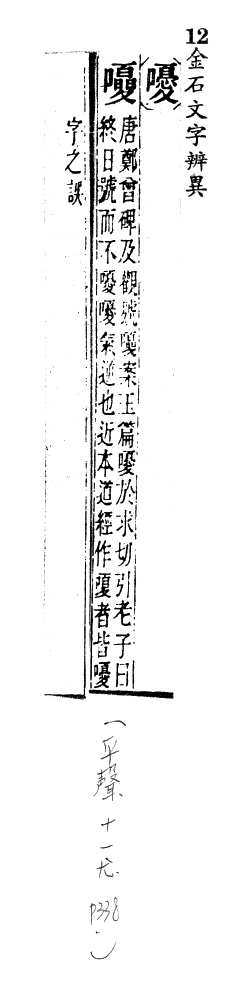 12
金石文字辨異
嚘
嗄
唐鄭曾碑及觀號嚘案玉篇嚘於求切引老子曰
終日號而不嚘嚘氣逆也近本道經作嗄者皆嚘
字之誤
(平聲 十一尤 P338)